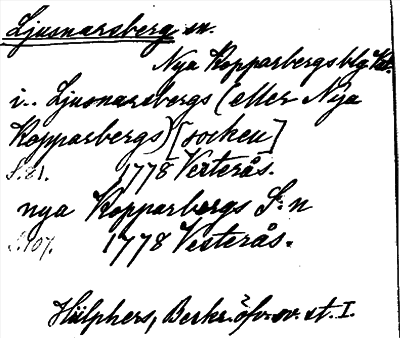 Ljusnarsberg sn.
Nya Kopparbergs blg
i.. Ljusnarsbergs (eller Nya
Kopparbergs) [socken]
S. 81. 1778 Vesterås.
nya Kopparbergs S:n
S. 107. 1778 Vesterås.
Hülphers, Beskr. öfv. sv. st. I.